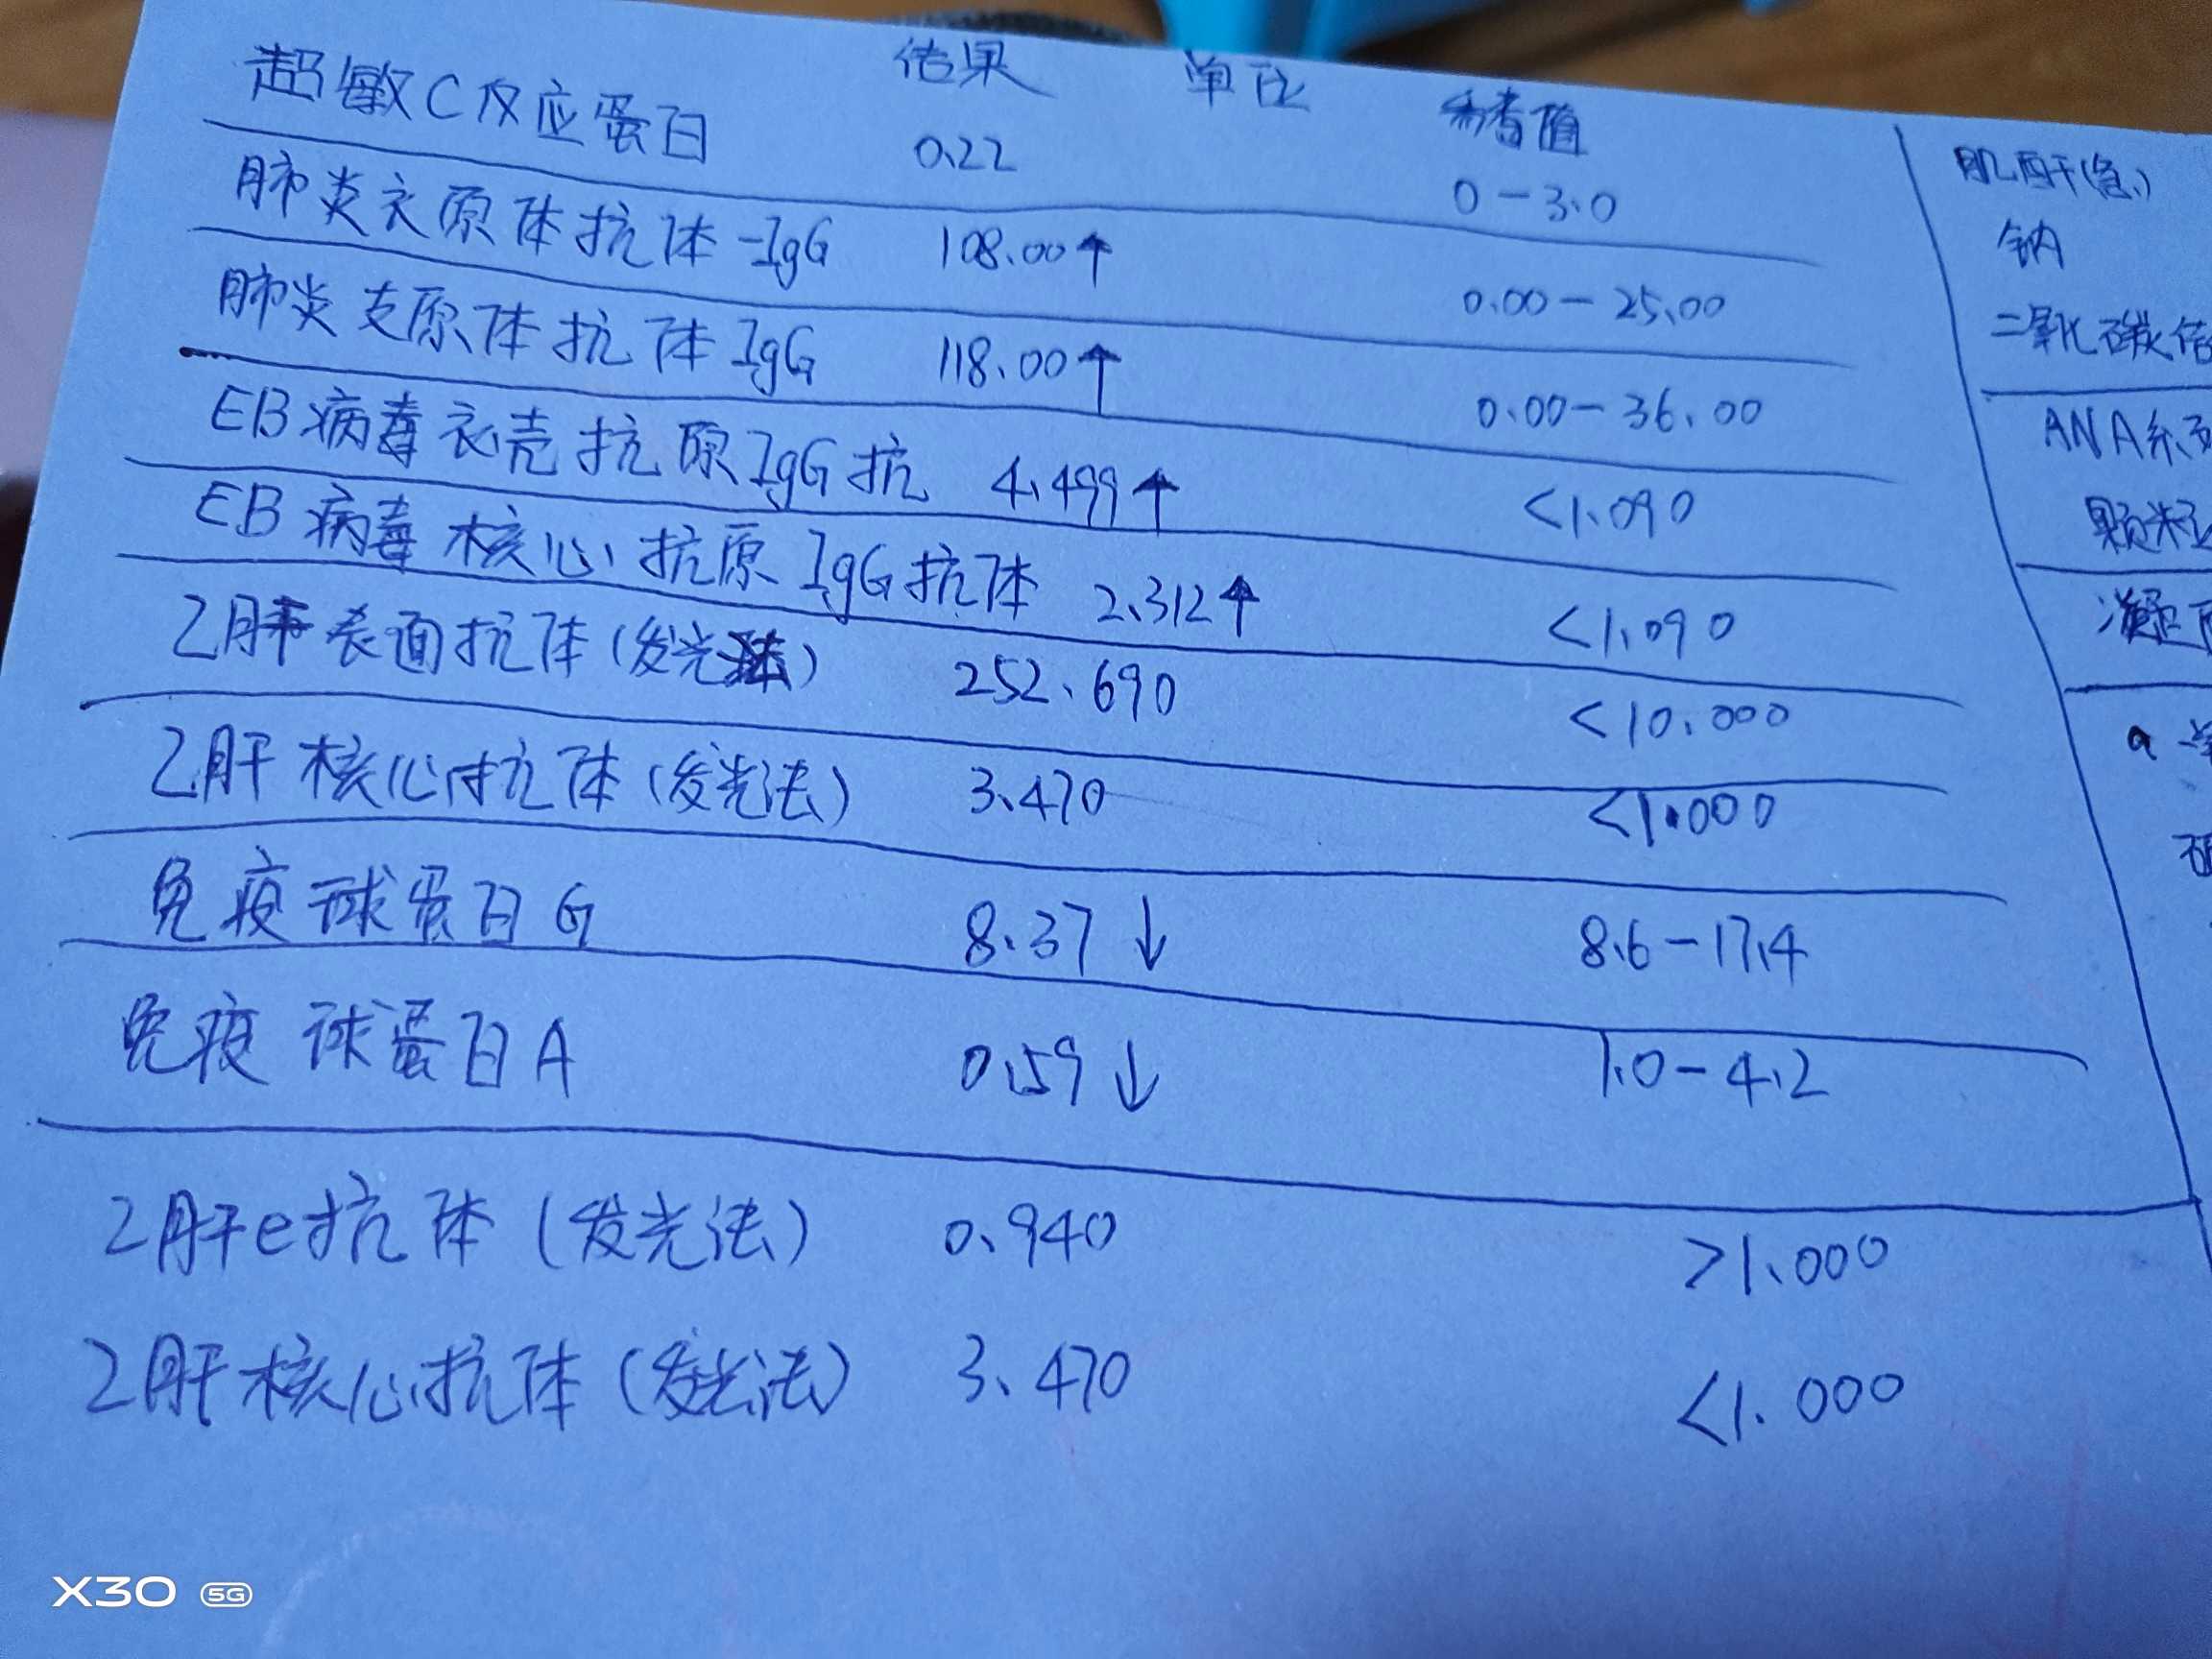 结果 单位 参考值
超敏C反应蛋白 0.22 0-3.0
肺炎衣原体抗体-IgG 108.00↑ 0.00-25.00
肺炎支原体抗体IgG 118.00↑ 0.00-36.00
EB病毒衣壳抗原IgG抗 4.499↑ <1.090
EB病毒核心抗原IgG抗体 2.312↑ <1.090
乙肝表面抗体(发光法) 252.690 <10.000
乙肝核心抗体(发光法) 3.470 <1.000
免疫球蛋白G 8.37↓ 8.6-17.4
免疫球蛋白A 0.59↓ 1.0-4.2
乙肝e抗体(发光法) 0.940 >1.000
乙肝核心抗体(发光法) 3.470 <1.000
肌酐(急)
钠
二氧化碳结
ANA系
颗粒
凝
a
X30 5G